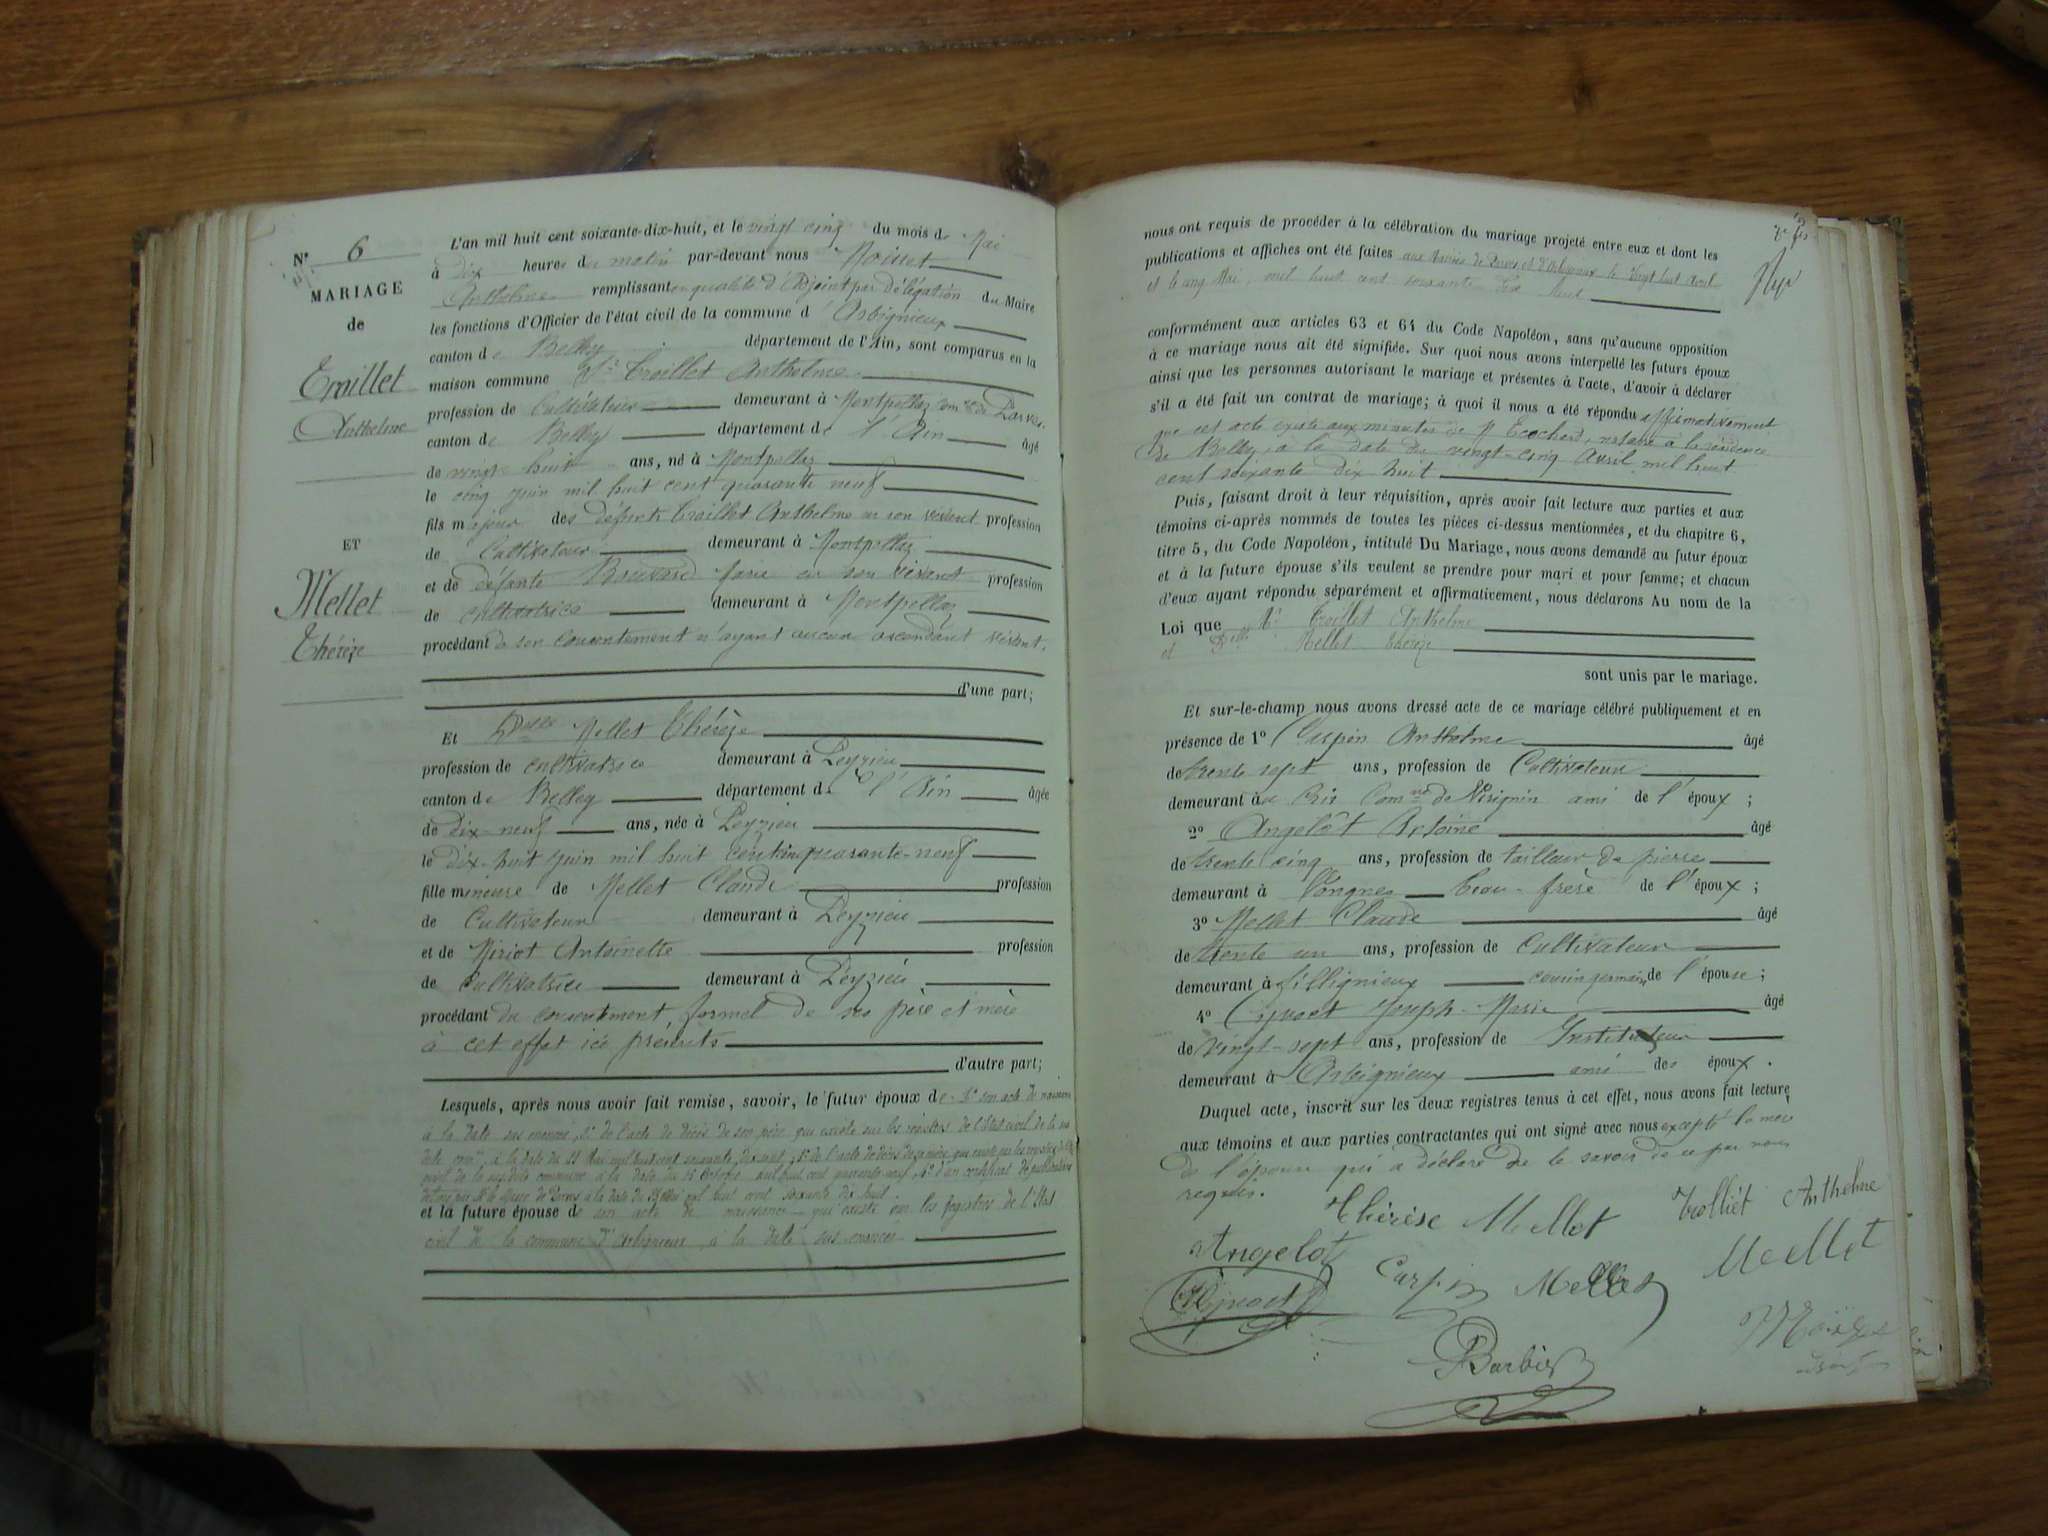 N° 6
MARIAGE
de
Troillet
Anthelme
ET
Mellet
Thérèze
L'an mil huit cent soixante-dix-huit, et le vingt cinq du mois de Mai
à dix heures du matin par-devant nous
Anthelme remplissant en qualité d'Adjoint par Délégation du Maire
les fonctions d'Officier de l'état civil de la commune d'Arbignieux
canton de Belley département de l'Ain, sont comparus en la
maison commune Sr Troillet Anthelme
profession de Cultivateur demeurant à Montpellaz de Parves
canton de Belley département de l'Ain âgé
de vingt huit ans, né à Montpellaz
le cinq juin mil huit cent quarante neuf
fils majeur des défunts Troillet Anthelme en son vivant profession
de Cultivateur demeurant à Montpellaz
et de défunte Marie en son vivant profession
de cultivatrice demeurant à Montpellaz
procédant de son consentement n'ayant aucun ascendant vivant.
d'une part;
Et Delle Mellet Thérèze
profession de cultivatrice demeurant à Peyzieu
canton de Belley département de l'Ain âgée
de dix-neuf ans, née à Peyzieu
le dix-huit juin mil huit cent quarante-neuf
fille mineure de Mellet Claude profession
de Cultivateur demeurant à Peyzieu
et de Antoinette profession
de Cultivatrice demeurant à Peyzieu
procédant du consentement formel de ses père et mère
à cet effet ici présents
d'autre part;
Lesquels, après nous avoir fait remise, savoir, le futur époux de 1° son acte de naissance
à la date sus énoncée, 2° de l'acte de décès de son père qui existe sur les registres de l'État civil de la
à la date du mil huit cent soixante 3° de l'acte de décès de sa mère qui existe
à la date du Octobre mil huit cent quarante neuf, 4° d'un certificat de publication
le Maire de Parves à la date du mil huit cent soixante dix huit
et la future épouse de son acte de naissance qui existe sur les registres de l'État
civil de la commune d'Arbignieux, à la date sus énoncée
nous ont requis de procéder à la célébration du mariage projeté entre eux et dont les
publications et affiches ont été faites aux Mairies de Parves et d'Arbignieux le Vingt huit Avril
et le cinq Mai, mil huit cent soixante dix huit
conformément aux articles 63 et 64 du Code Napoléon, sans qu'aucune opposition
à ce mariage nous ait été signifiée. Sur quoi nous avons interpellé les futurs époux
ainsi que les personnes autorisant le mariage et présentes à l'acte, d'avoir à déclarer
s'il a été fait un contrat de mariage; à quoi il nous a été répondu affirmativement
que cet acte existe aux minutes de M Ecochard, notaire à la résidence
de Belley, à la date du vingt-cinq Avril mil huit
cent soixante dix huit
Puis, faisant droit à leur réquisition, après avoir fait lecture aux parties et aux
témoins ci-après nommés de toutes les pièces ci-dessus mentionnées, et du chapitre 6,
titre 5, du Code Napoléon, intitulé Du Mariage, nous avons demandé au futur époux
et à la future épouse s'ils veulent se prendre pour mari et pour femme; et chacun
d'eux ayant répondu séparément et affirmativement, nous déclarons Au nom de la
Loi que Sr Troillet Anthelme
et Delle Mellet Thérèze
sont unis par le mariage.
Et sur-le-champ nous avons dressé acte de ce mariage célébré publiquement et en
présence de 1° Curpin Anthelme âgé
de trente sept ans, profession de Cultivateur
demeurant à de Virignin ami de l'époux;
2° Angelot Antoine âgé
de trente cinq ans, profession de tailleur de pierres
demeurant à beau-frère de l'époux;
3° Mellet Claude âgé
de trente un ans, profession de Cultivateur
demeurant à Sillignieux cousin germain de l'épouse;
4° Cyvoct Joseph-Marie âgé
de vingt-sept ans, profession de Instituteur
demeurant à Arbignieux ami des époux.
Duquel acte, inscrit sur les deux registres tenus à cet effet, nous avons fait lecture
aux témoins et aux parties contractantes qui ont signé avec nous excepté la mère
de l'épouse qui a déclaré ne le savoir de ce par nous
requis.
Thérèse Mellet Trolliet Anthelme
Angelot Curpin Mellet Mellet
Cyvoct
Barbier